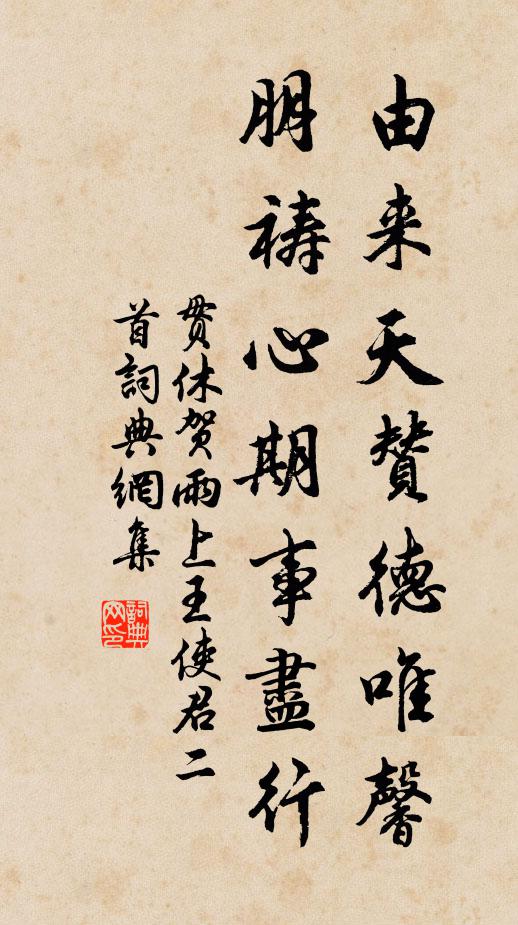 由来天贊德唯馨
朋祷心期事盡行
贯休贺雨上王使君二
首詞典網集
詞典
网印